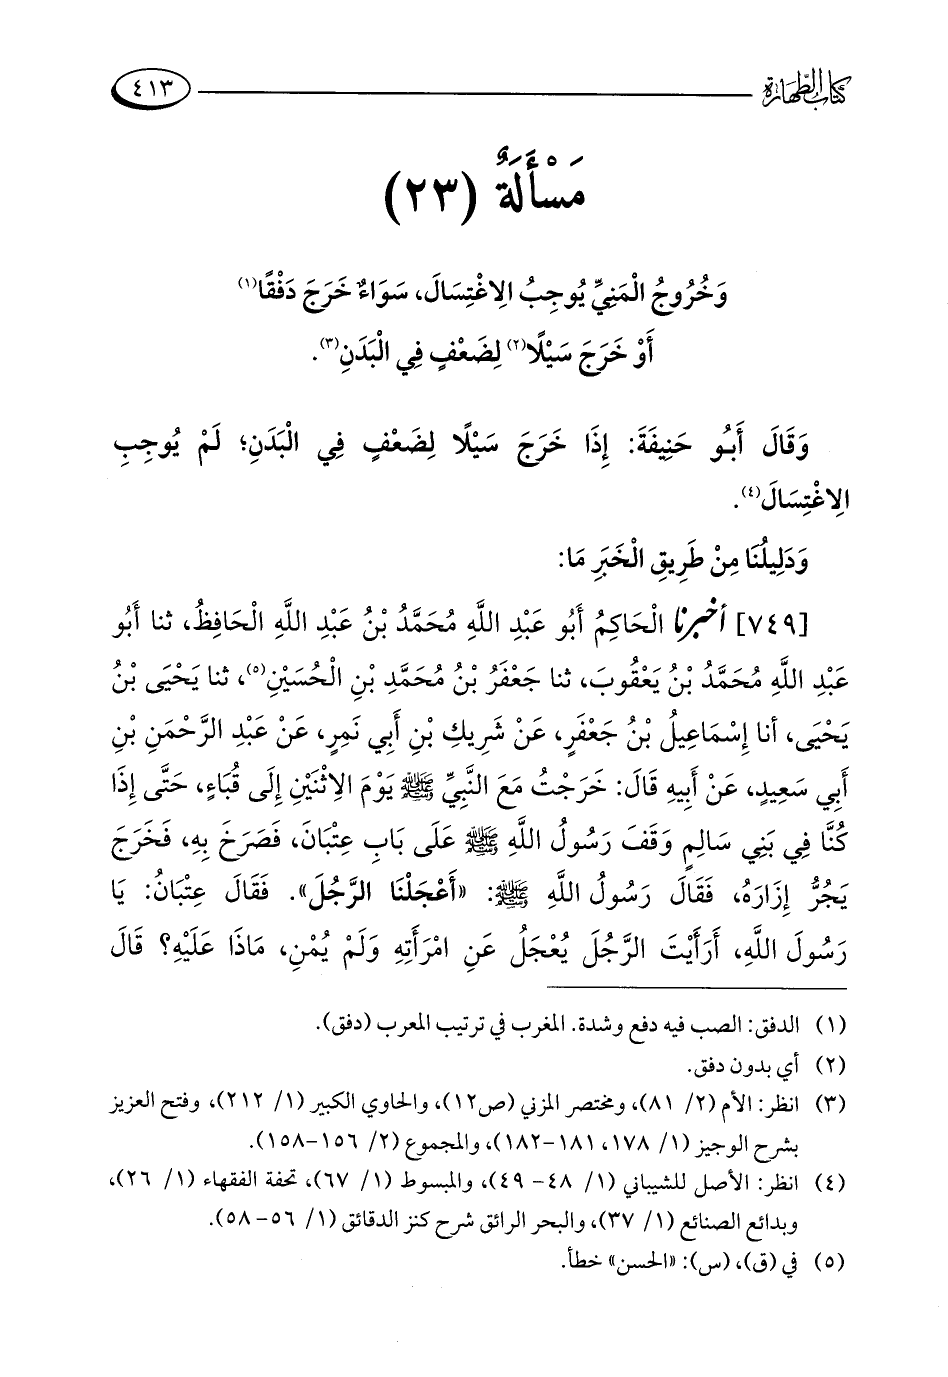 كتاب الطهارة ٤١٣
مَسْأَلَةٌ (٢٣)
وَخُرُوجُ الْمَنِيِّ يُوجِبُ الِاغْتِسَالَ، سَوَاءٌ خَرَجَ دَفْقًا(١)
أَوْ خَرَجَ سَيْلًا(٢) لِضَعْفٍ فِي الْبَدَنِ(٣).
وَقَالَ أَبُو حَنِيفَةَ: إِذَا خَرَجَ سَيْلًا لِضَعْفٍ فِي الْبَدَنِ؛ لَمْ يُوجِبِ
الِاغْتِسَالَ(٤).
وَدَلِيلُنَا مِنْ طَرِيقِ الْخَبَرِ مَا:
[٧٤٩] أخبرنا الْحَاكِمُ أَبُو عَبْدِ اللَّهِ مُحَمَّدُ بْنُ عَبْدِ اللَّهِ الْحَافِظُ، ثنا أَبُو
عَبْدِ اللَّهِ مُحَمَّدُ بْنُ يَعْقُوبَ، ثنا جَعْفَرُ بْنُ مُحَمَّدِ بْنِ الْحُسَيْنِ(٥)، ثنا يَحْيَى بْنُ
يَحْيَى، أنا إِسْمَاعِيلُ بْنُ جَعْفَرٍ، عَنْ شَرِيكِ بْنِ أَبِي نَمِرٍ، عَنْ عَبْدِ الرَّحْمَنِ بْنِ
أَبِي سَعِيدٍ، عَنْ أَبِيهِ قَالَ: خَرَجْتُ مَعَ النَّبِيِّ ﷺ يَوْمَ الِاثْنَيْنِ إِلَى قُبَاءٍ، حَتَّى إِذَا
كُنَّا فِي بَنِي سَالِمٍ وَقَفَ رَسُولُ اللَّهِ ﷺ عَلَى بَابِ عِتْبَانَ، فَصَرَخَ بِهِ، فَخَرَجَ
يَجُرُّ إِزَارَهُ، فَقَالَ رَسُولُ اللَّهِ ﷺ: «أَعْجَلْنَا الرَّجُلَ». فَقَالَ عِتْبَانُ: يَا
رَسُولَ اللَّهِ، أَرَأَيْتَ الرَّجُلَ يُعْجَلُ عَنِ امْرَأَتِهِ وَلَمْ يُمْنِ، مَاذَا عَلَيْهِ؟ قَالَ
(١) الدفق: الصب فيه دفع وشدة. المغرب في ترتيب المعرب (دفق).
(٢) أي بدون دفق.
(٣) انظر: الأم (٢/ ٨١)، ومختصر المزني (ص١٢)، والحاوي الكبير (١/ ٢١٢)، وفتح العزيز
بشرح الوجيز (١/ ١٧٨، ١٨١-١٨٢)، والمجموع (٢/ ١٥٦-١٥٨).
(٤) انظر: الأصل للشيباني (١/ ٤٨- ٤٩)، والمبسوط (١/ ٦٧)، تحفة الفقهاء (١/ ٢٦)،
وبدائع الصنائع (١/ ٣٧)، والبحر الرائق شرح كنز الدقائق (١/ ٥٦- ٥٨).
(٥) في (ق)، (س): «الحسن» خطأ.